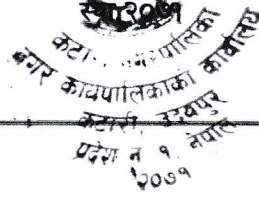 स्था २०७१
कटारी नगरपालिका
नगर कार्यपालिकाको कार्यालय
कटारी, उदयपुर
प्रदेश नं १ नेपाल
२०७१